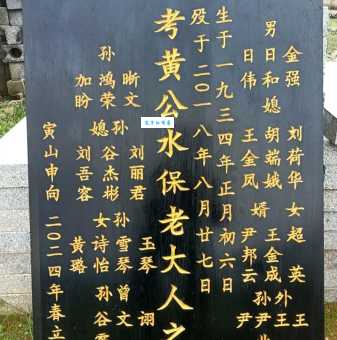 金强 刘荷华 女超英 王
男日和媳胡端娥 王金成 外王
日伟 王金凤 婿尹邦云 孙尹
生于一九三四年正月初六日
殁于二〇一八年八月廿七日
考黄公水保老大人之
晰文 刘丽君 玉琴 诩
孙鸿荣 孙媳谷杰彬 孙女雪琴 曾文
加盼 刘吾容 诗怡 孙谷
黄璐
寅山申向 二〇二四年春立